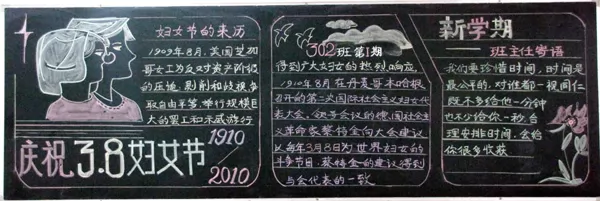 妇女节的来历
1909年8月,美国芝加
哥女工为反对资产阶级
的压迫、剥削和歧视,争
取自由平等,举行规模巨
大的罢工和示威游行
庆祝3.8妇女节
1910
2010
302班第1期
得到广大妇女的热烈响应,
1910年8月在丹麦哥本哈根
召开的第二次国际社会主义妇女代
表大会,领导会议的德国社会主
义革命家蔡特金向大会建议
以每年3月8日为世界妇女的
斗争节日,蔡特金的建议得到
与会代表的一致
新学期
班主任寄语
我们要珍惜时间,时间是
最公平的,对谁都一视同仁
既不多给他一分钟
也不少给你一秒,合
理安排时间,会给
你很多收获